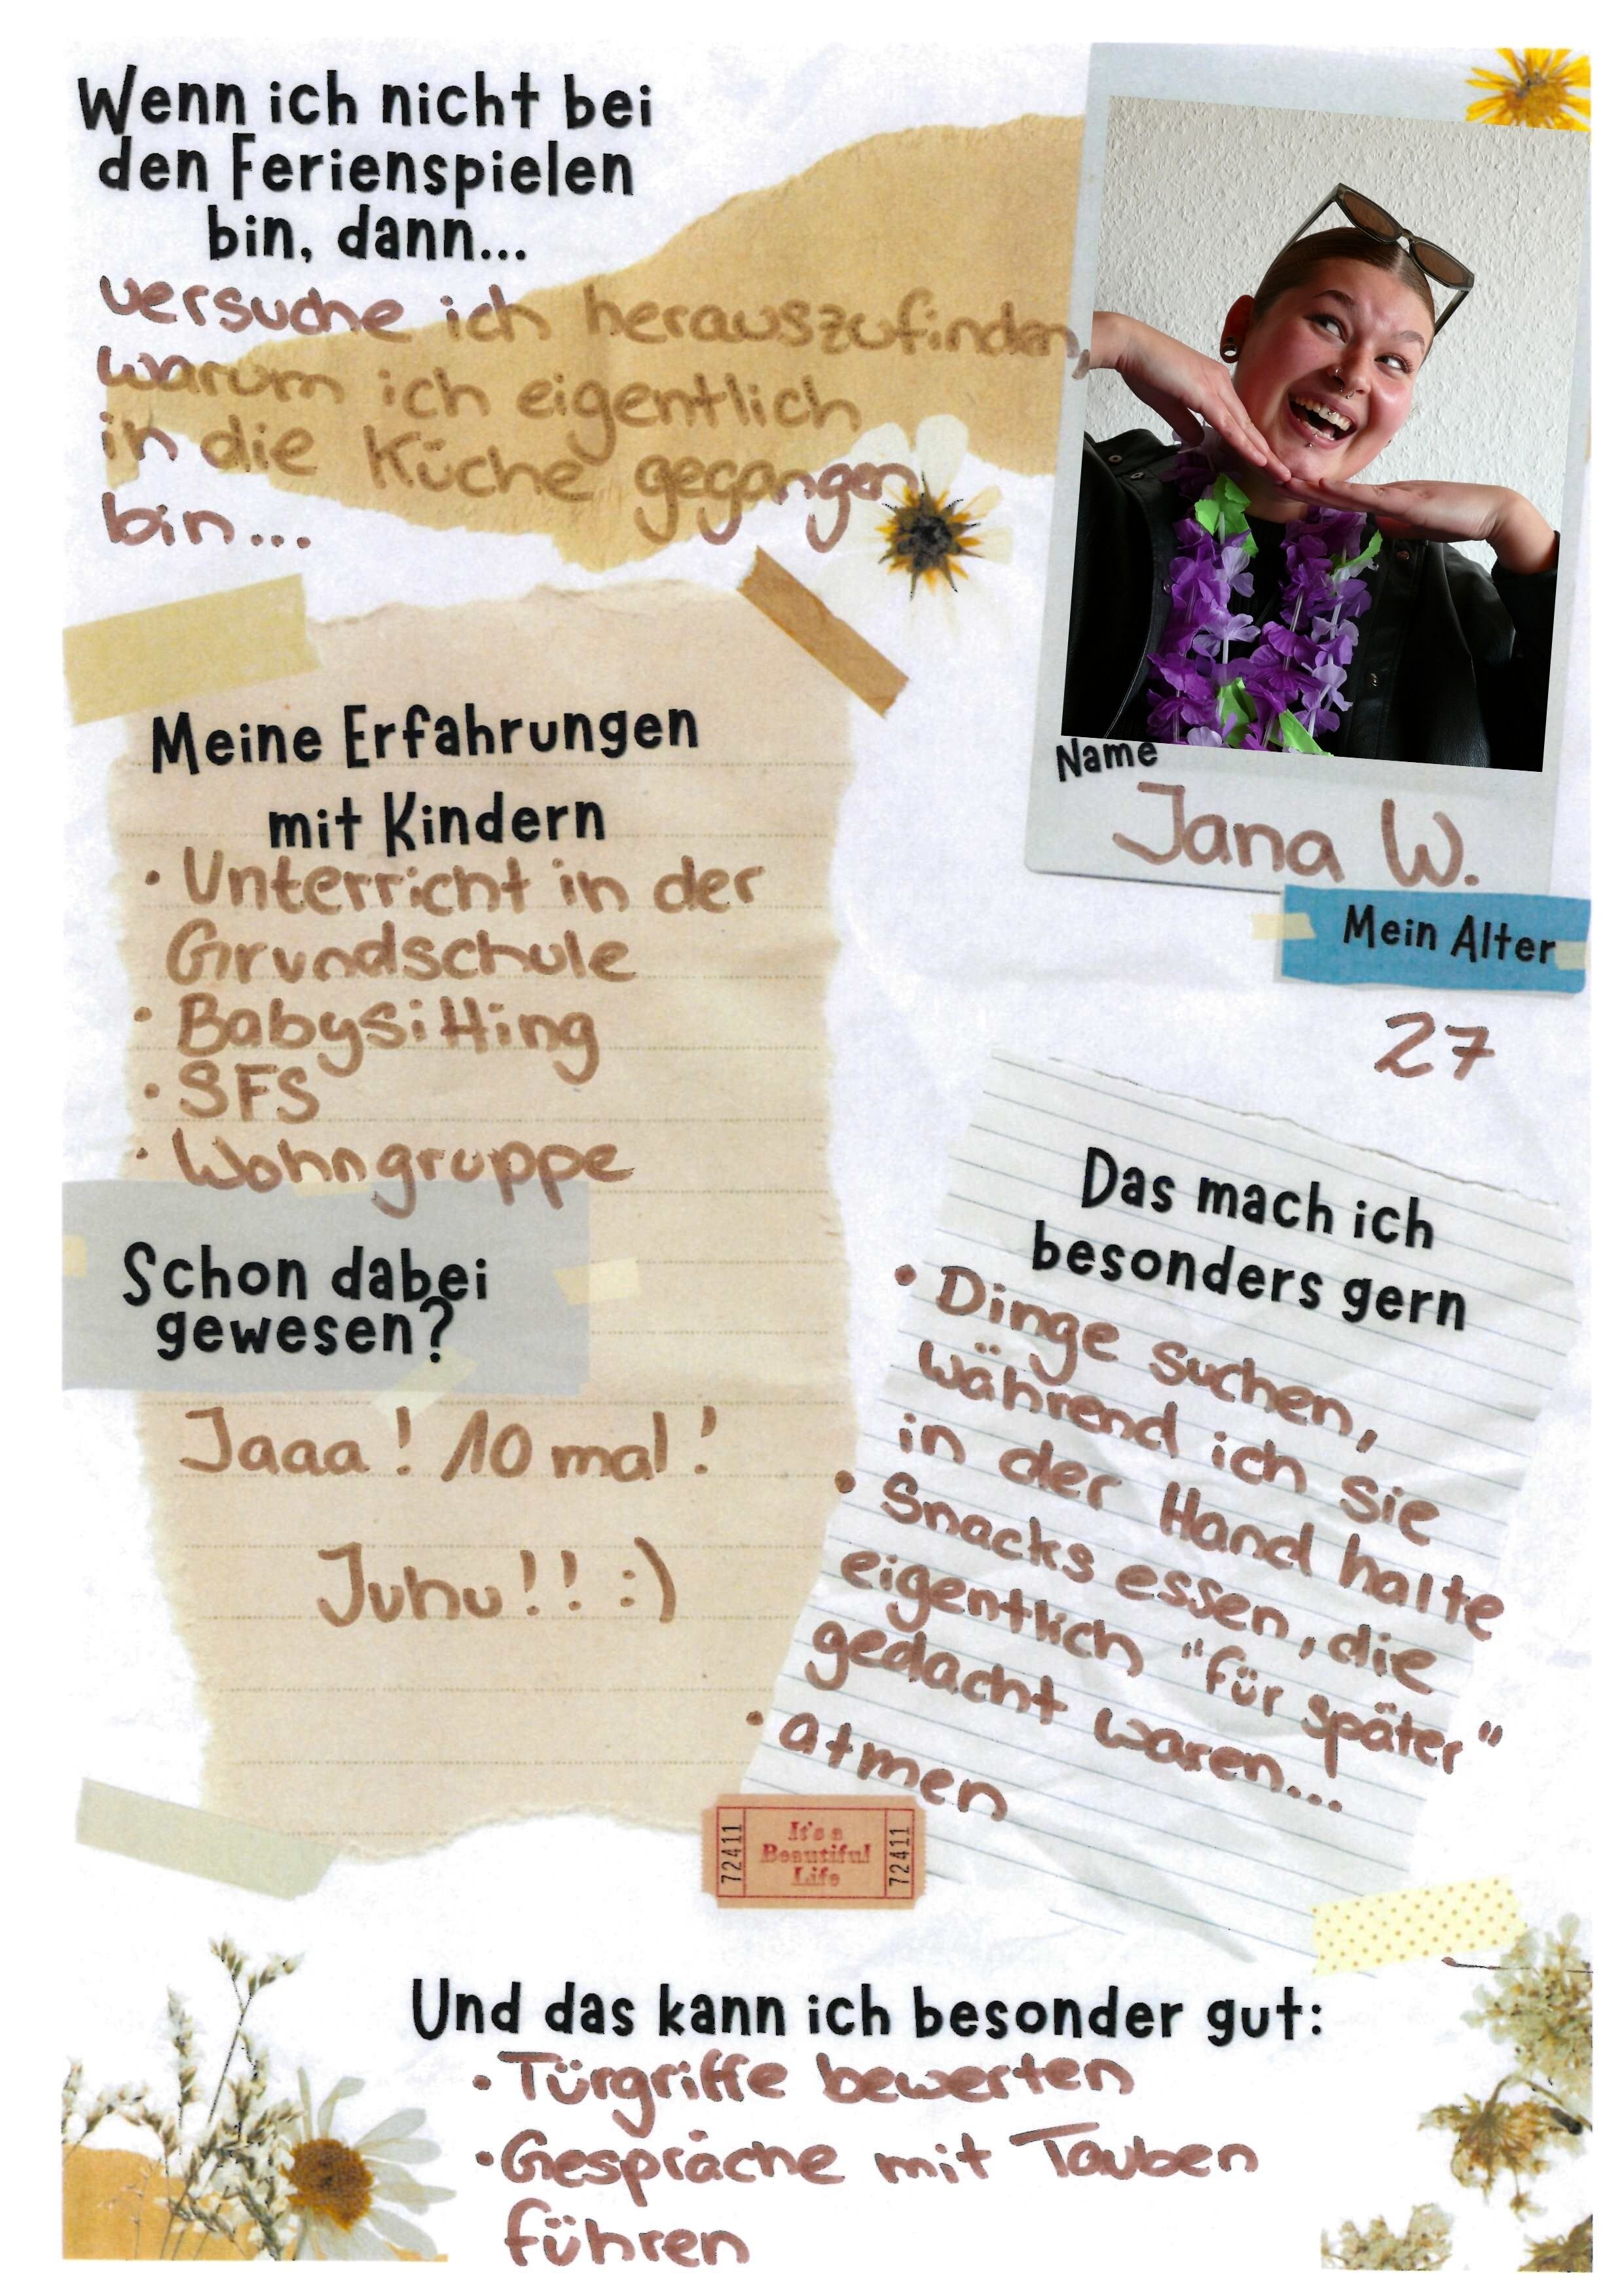 Wenn ich nicht bei
den Ferienspielen
bin, dann...
versuche ich herauszufinden,
warum ich eigentlich
in die Küche gegangen
bin...
Name
Jana W.
Mein Alter
27
Meine Erfahrungen
mit Kindern
• Unterricht in der
Grundschule
• Babysitting
• SFS
• Wohngruppe
Schon dabei
gewesen?
Jaaa! 10 mal!
Juhu!! :)
Das mach ich
besonders gern
• Dinge suchen,
während ich sie
in der Hand halte
• Snacks essen, die
eigentlich "für später"
gedacht waren...
• atmen
72411
It's a
Beautiful
Life
72411
Und das kann ich besonder gut:
• Türgriffe bewerten
• Gespräche mit Tauben
führen